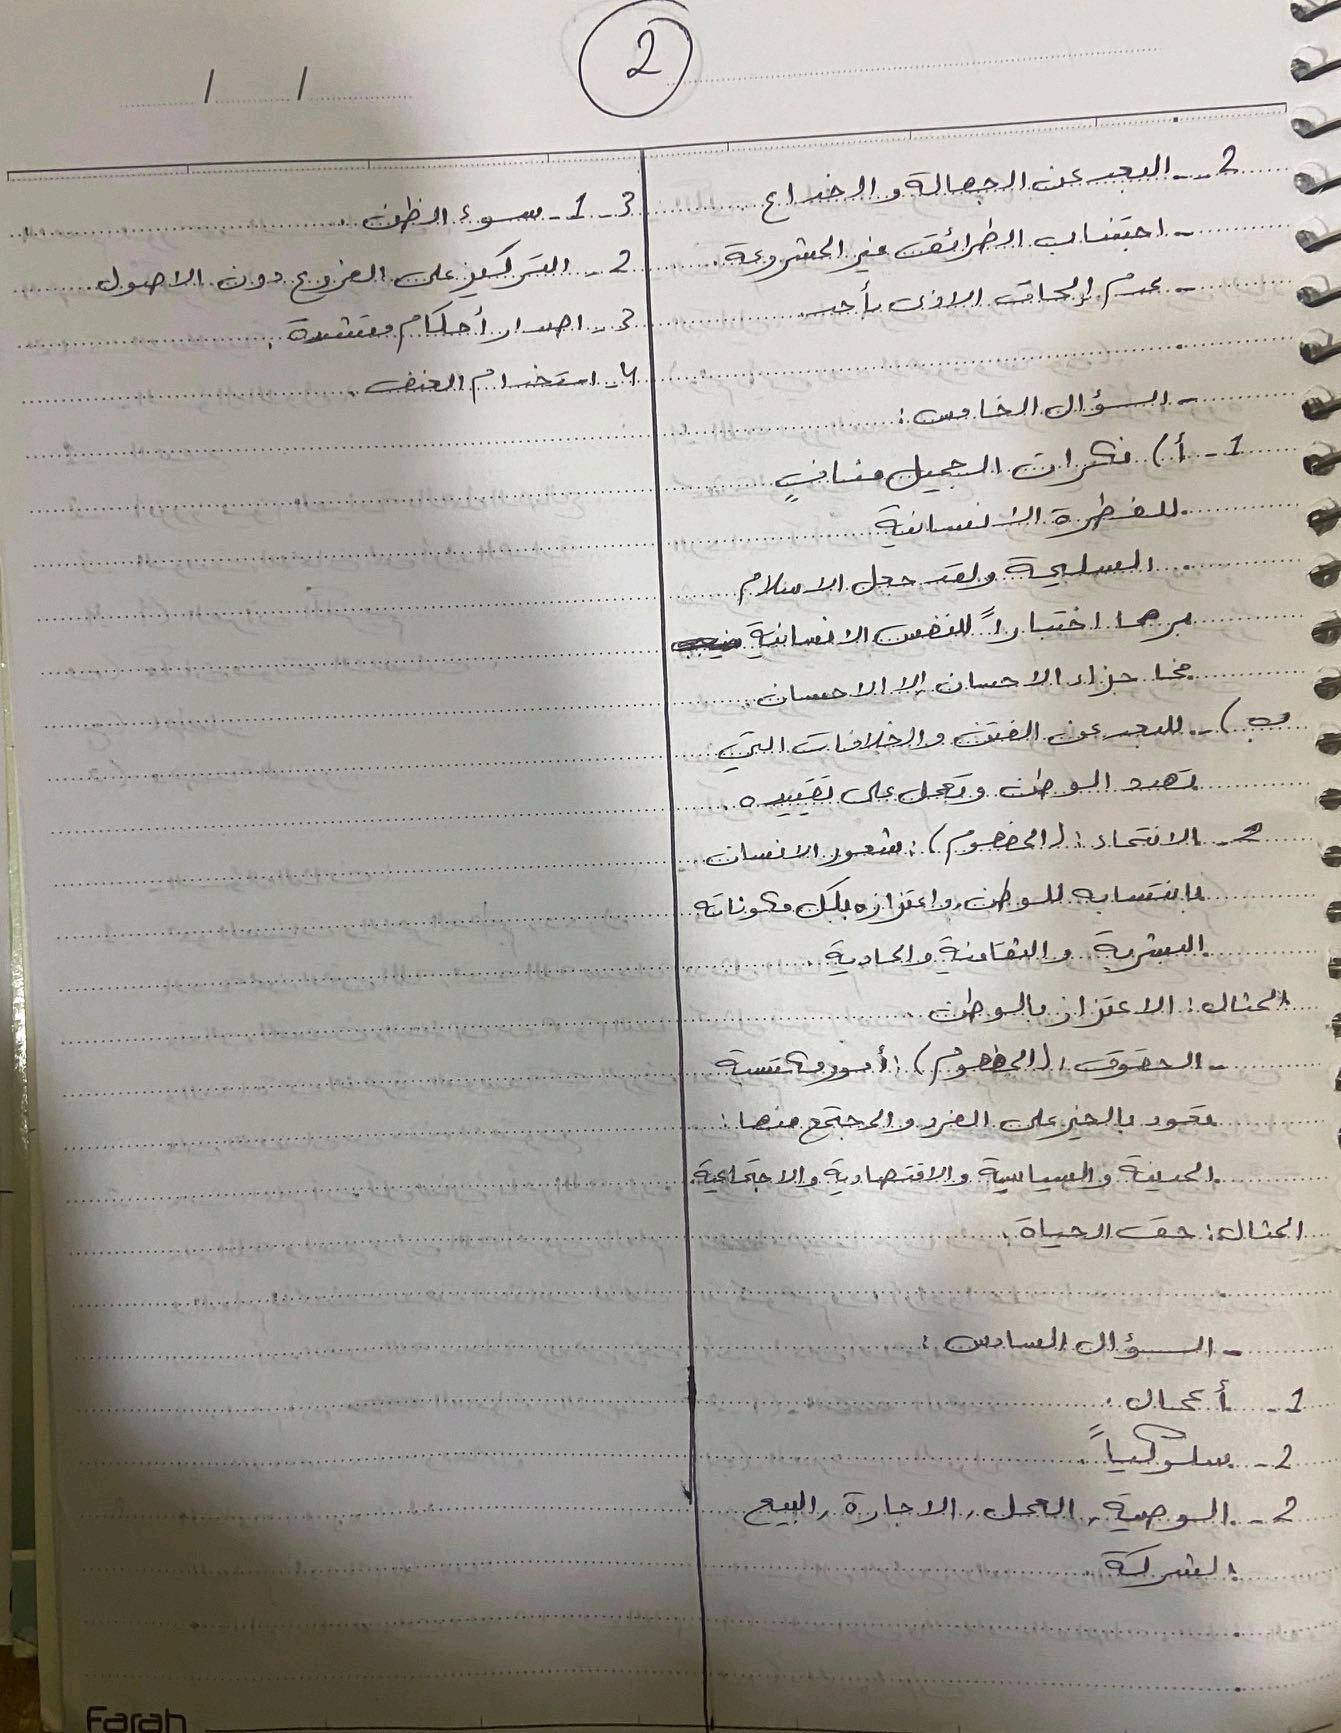 2
/ /
2 - البعد عن الجهالة والخداع
- اجتناب الطرائق غير المشروعة.
- عدم إلحاق الاذى بأحد.
- السؤال الخامس:
1 - أ) نكران الجميل منافٍ
للفطرة الانسانية
السليمة ولقد جعل الاسلام
اختباراً للنفس الانسانية
فما جزاء الاحسان إلا الاحسان.
ب) - للبعد عن الفتن والخلافات التي
تهدد الوطن وتعمل على تقييده.
2 - الانتماء: (المفهوم): شعور الانسان
بانتسابه للوطن، واعتزازه بكل مكوناته
البشرية والثقافية والمادية.
المثال: الاعتزاز بالوطن.
- الحقوق: (المفهوم): أمور مكتسبة
تعود بالخير على الفرد والمجتمع منها:
المدنية والسياسية والاقتصادية والاجتماعية.
المثال: حق الحياة.
- السؤال السادس:
1 - أعمال.
2 - سلوكياً.
2 - الوصية، العمل، الاجارة، البيع
الشركة.
3 - 1 - سوء الظن.
2 - التركيز على الفروع دون الاصول
3 - اصدار أحكام متشددة.
4 - استخدام العنف.
Farah